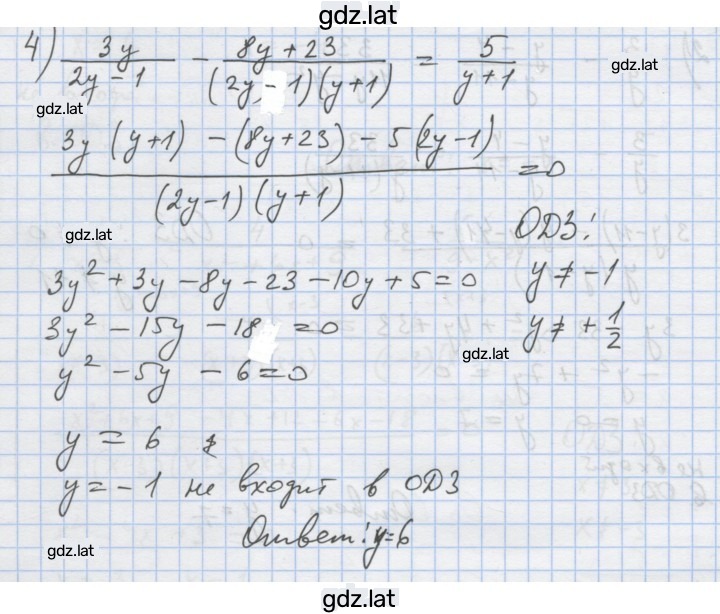 gdz.lat
4) 3y/(2y-1) - (8y+23)/((2y-1)(y+1)) = 5/(y+1)
gdz.lat
gdz.lat
(3y(y+1) - (8y+23) - 5(2y-1))/((2y-1)(y+1)) = 0
gdz.lat
ОДЗ:
3y² + 3y - 8y - 23 - 10y + 5 = 0
y ≠ -1
3y² - 15y - 18 = 0
y ≠ + 1/2
gdz.lat
y² - 5y - 6 = 0
y = 6
y = -1 не входит в ОДЗ
Ответ: y=6
gdz.lat
gdz.lat